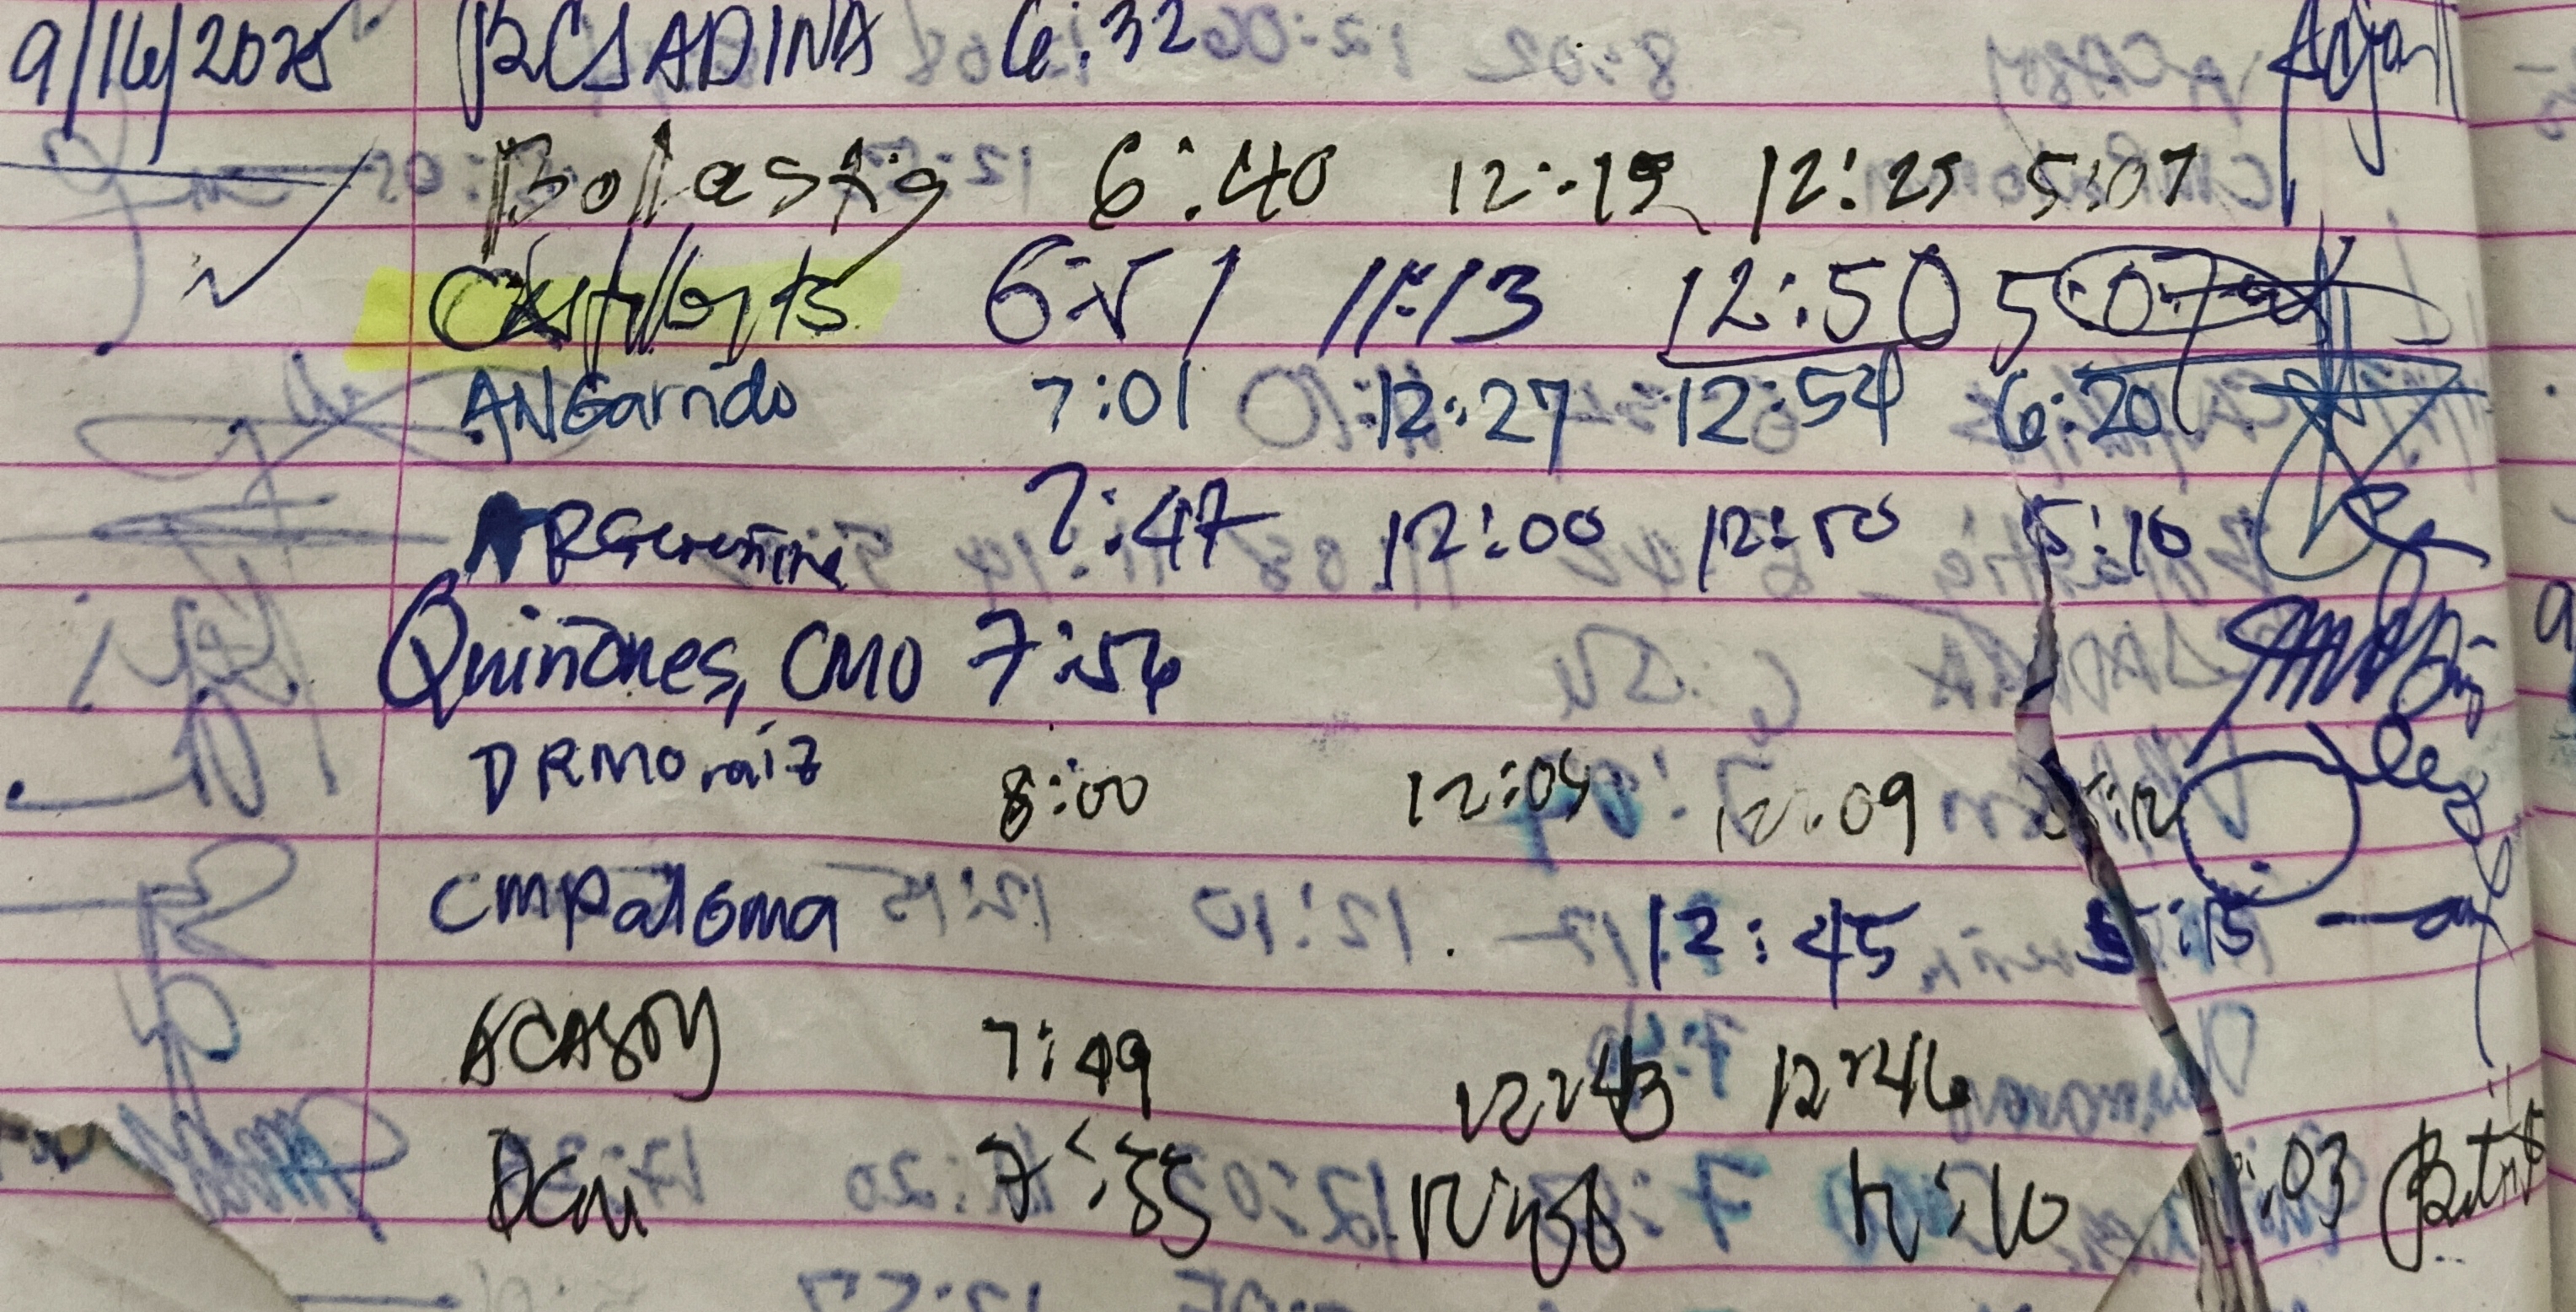 9/16/2025 RCSADINA 6:32
Bolastig 6:40 12:19 12:25 5:07
6:51 11:13 12:50 5:07
ANGarrido 7:01 12:27 12:54 6:20
7:47 12:00 12:50 5:10
Quiñones, CMO 7:56
DRMoraiz 8:00 12:05 12:09 5:12
CMPaloma 12:45 5:15
ACASOY 7:49 12:43 12:46
7:55 12:10 :03